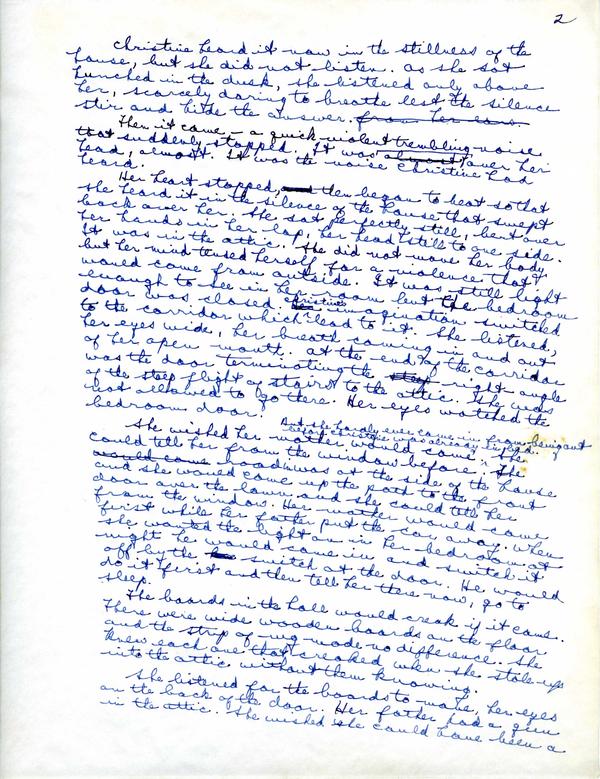 2
Christine heard it now in the stillness of the
house, but she did not listen. As she sat
hunched in the dusk, she listened only above
her, scarcely daring to breathe lest the silence
stir and hide the answer. from her ears.
Then it came – a quick violent trembling noise
that suddenly stopped. It was almost over her
head, almost. It was the noise Christine had
heard.
Her heart stopped, and then began to beat so that
she heard it in the silence of the house that swept
back over her. She sat perfectly still, bent over
her hands in her lap, her head still to one side.
It was in the attic! She did not move her body
but her mind tensed herself for a violence that
would come from outside. It was still light
enough to see in her room but the bedroom
door was closed. Christine's imagination switched
to the corridor which lead to it. She listened,
her eyes wide, her breath coming in and out
of her open mouth. At the end of the corridor
was the door terminating the right angle
of the steep flight of stairs to the attic. She was
not allowed to go there. Her eyes watched the
bedroom door.
But she hardly ever came in from being out
before Christine was already in bed.
She wished her mother would come. She
could tell her from the window before. The
would come road was at the side of the house
and she would come up the path to the front
door over the lawn and she could tell her
from the window. Her mother would come
first while her father put the car away. When
she wanted the light on in her bedroom at
night he would come in and switch it
off by the switch at the door. He would
do it first and then tell her there now, go to
sleep.
The boards in the hall would creak if it came.
There were wide wooden boards on the floor
and the strip of rug made no difference. She
knew each one that creaked when she stole up
into the attic without them knowing.
She listened for the boards to make, her eyes
on the back of the door. Her father had a gun
in the attic. She wished she could have been a